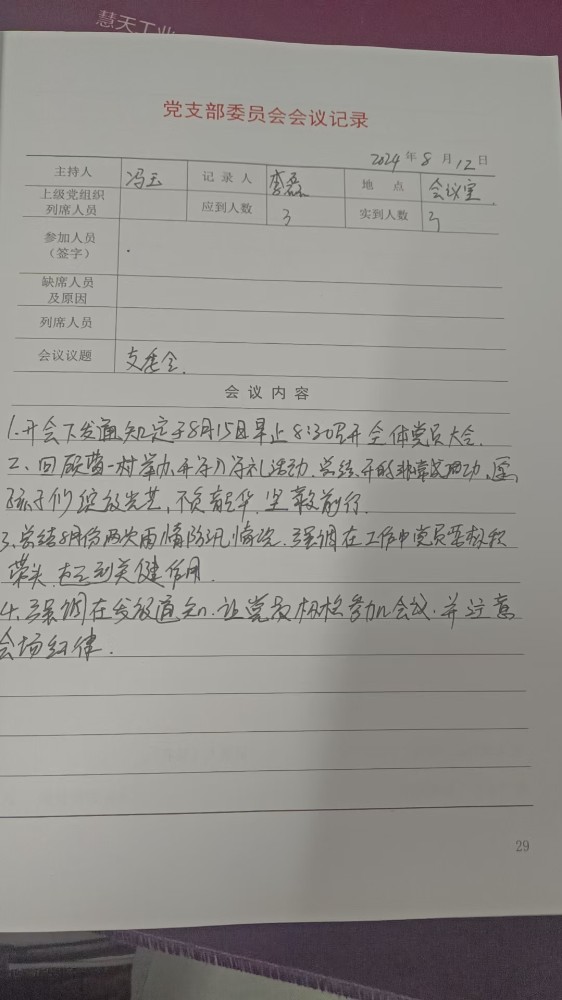 慧天工业
党支部委员会会议记录
2024 年 8 月 12 日
主持人 冯玉 记录人 李磊 地点 会议室
上级党组织列席人员 应到人数 3 实到人数 3
参加人员
(签字)
缺席人员
及原因
列席人员
会议议题 支委会.
会议内容
1.开会下发通知定于8月15日早上8:30召开全体党员大会.
2、回顾第一村举办开学入学礼活动.总结.开的非常成功,愿
孩子们绽放光芒,不负韶华,坚毅前行.
3、总结8月份两次雨情防汛情况.强调在工作中党员要积极
带头,起到关键作用.
4.强调在发放通知.让党员积极参加会议.并注意
会场纪律.
29